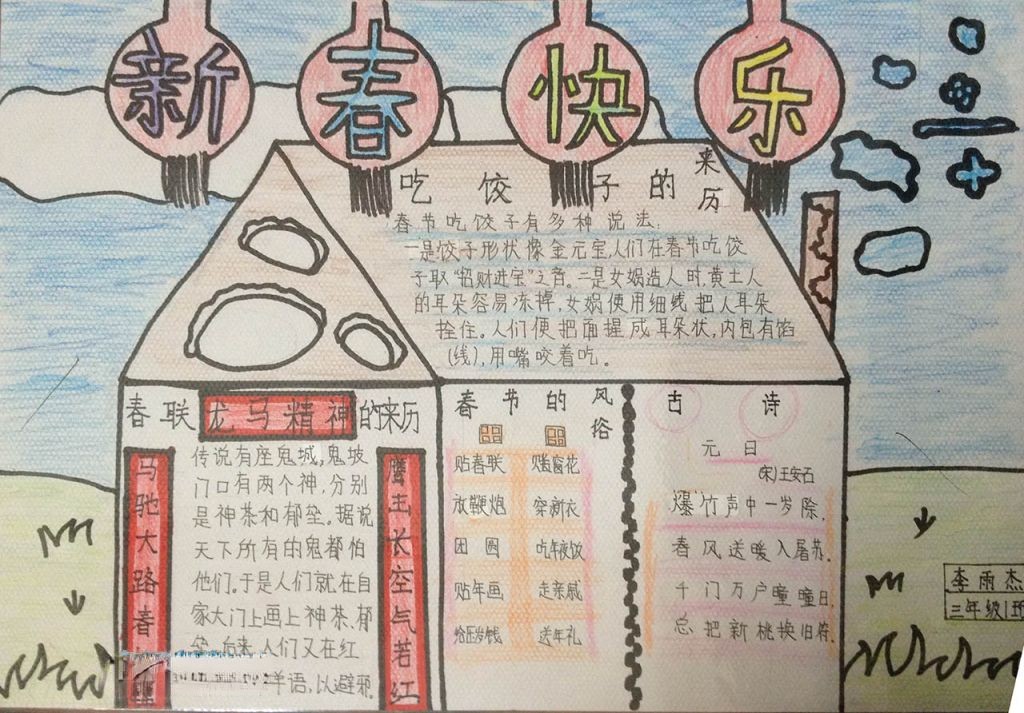 新春快乐
吃饺子的来历
春节吃饺子有多种说法:
一是饺子形状像金元宝,人们在春节吃饺
子取“招财进宝”之音。二是女娲造人时,黄土人
的耳朵容易冻掉,女娲使用细线把人耳朵
拴住。人们便把面握成耳朵状,内包有馅
(线),用嘴咬着吃。
春联龙马精神的来历
马驰大路春
传说有座鬼城,鬼坡
门口有两个神,分别
是神荼和郁垒。据说
天下所有的鬼都怕
他们。于是人们就在自
家大门上画上神荼、郁
垒,后来人们又在红
祥语,以避邪.
长空气若红
春节的风俗
贴春联 贴窗花
放鞭炮 穿新衣
团圆 吃年夜饭
贴年画 走亲戚
给压岁钱 送年礼
古诗
元日
(宋)王安石
爆竹声中一岁除,
春风送暖入屠苏.
千门万户曈曈日,
总把新桃换旧符.
李雨杰
三年级1班